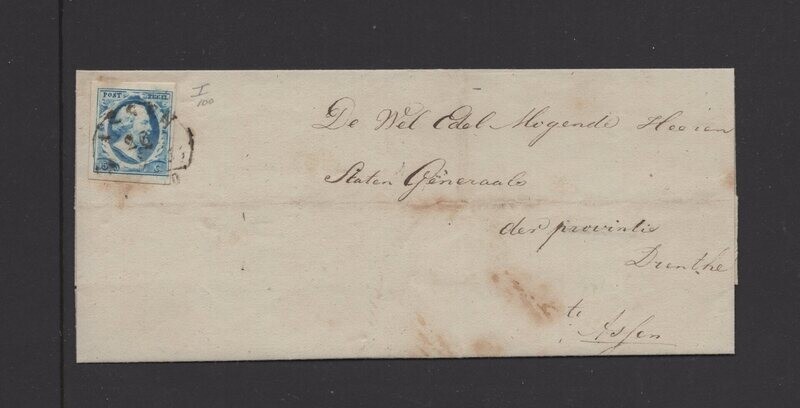 POST ZEGEL
5 C
26
I
100
De Wel Edel Mogende Heeren
Staten Géneraals
der provintie
Drenthe
te
Assen